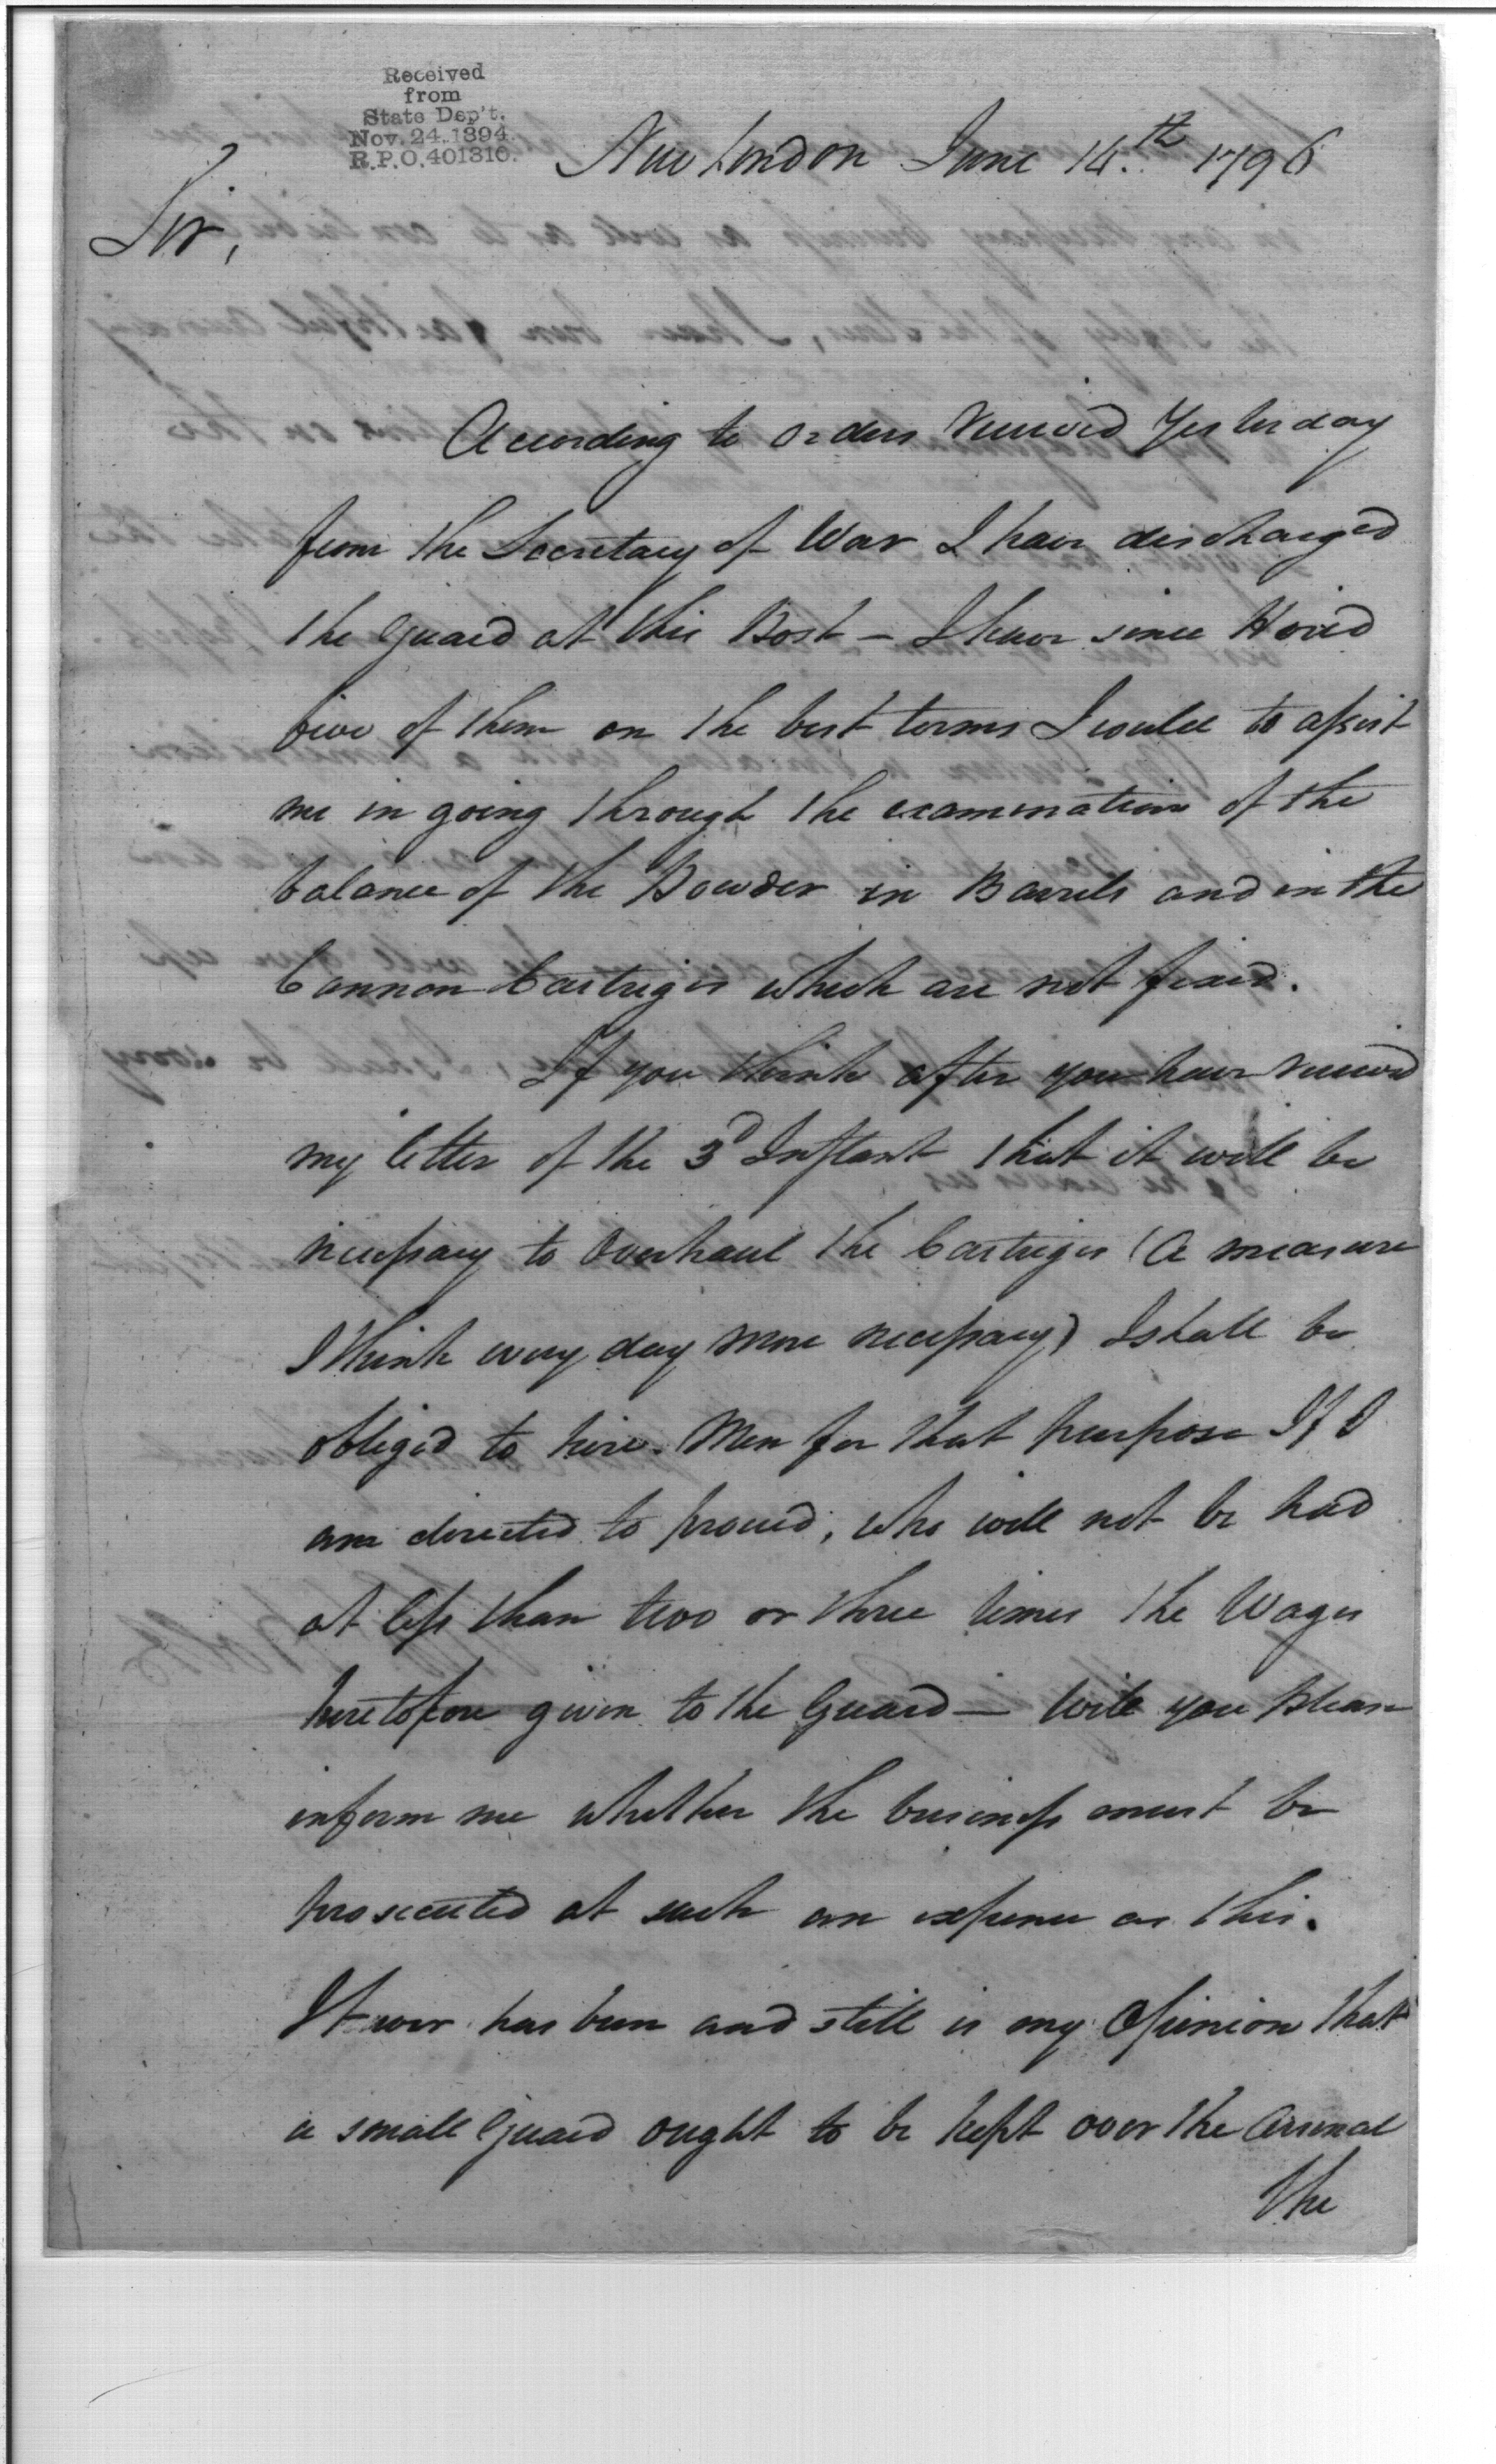 Received
from
State Dep't.
Nov. 24. 1894.
R.P.O. 401310.
New London June 14.th 1796
Sir,
According to orders received Yesterday
from the Secretary of War I have discharged
the Guard at this Post – I have since Hired
five of them on the best terms I could to assist
me in going through the examination of the
balance of the Powder in Barrels and in the
Cannon Cartriges which are not fixed.
If you think after you have received
my letter of the 3d Instant that it will be
necessary to Overhaul the Cartriges (a measure
I think every day more necessary) I shall be
obliged to hire Men for that purpose If I
am directed to proceed, who will not be had
at less than two or three times the Wages
heretofore given to the Guard – Will you please
inform me whether the business must be
prosecuted at such an expence as this.
It ever has been and still is my Opinion that
a small Guard ought to be kept over the Arsenal
the